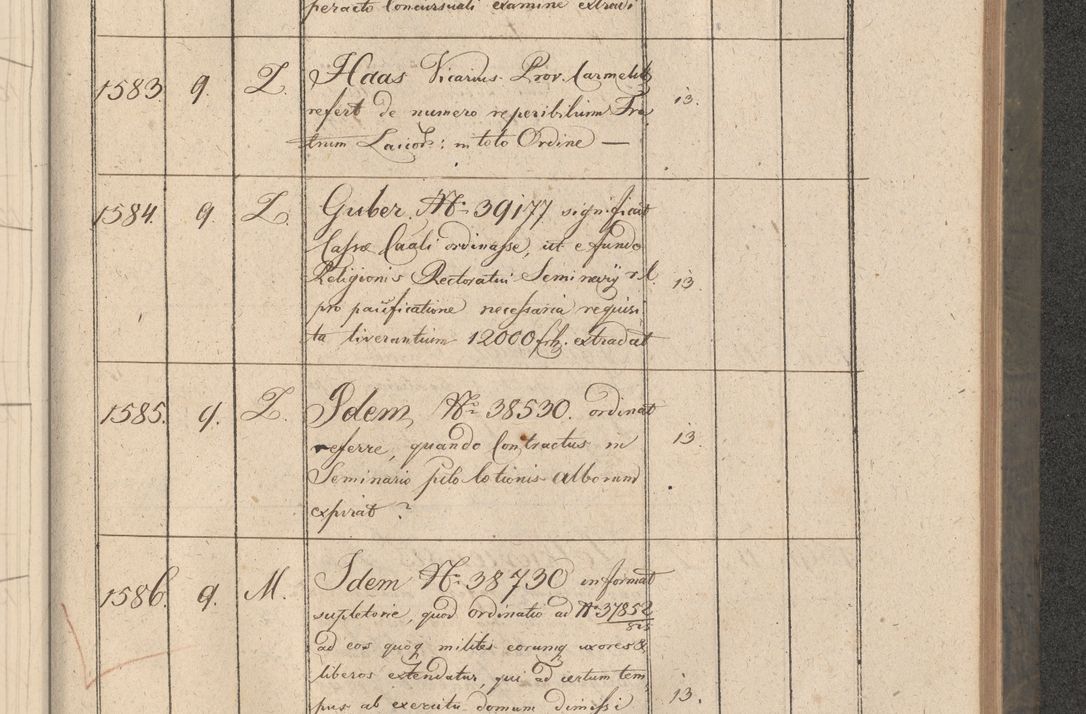 peracto Concursuali examine extradi
1583. 9. L. Haas Vicarius Prov. Carmelit.
refert de numero reperibilium Fra
trum Laicor: in toto Ordine — 13.
1584. 9. L. Guber. Nr. 39177 significat
Cassæ Caãli ordinasse, ut e fundo
Religionis Rectoratui Seminarÿ r.l. 13
pro pacificatione necessaria requisi
ta liverantium 12000 frh. extradat
1585. 9. L. Idem Nr. 38530. ordinat
referre, quando Contractus in 13
Seminario lotionis alborum
expirat?
1586. 9. M. Idem Nr. 38730 informat
supletorie, quod ordinatio ad Nr. 37852
ad eos quoq milites eorumq uxores &
liberos extendatur, qui ad certum tem
pus ab exercitu domum dimissi 13.